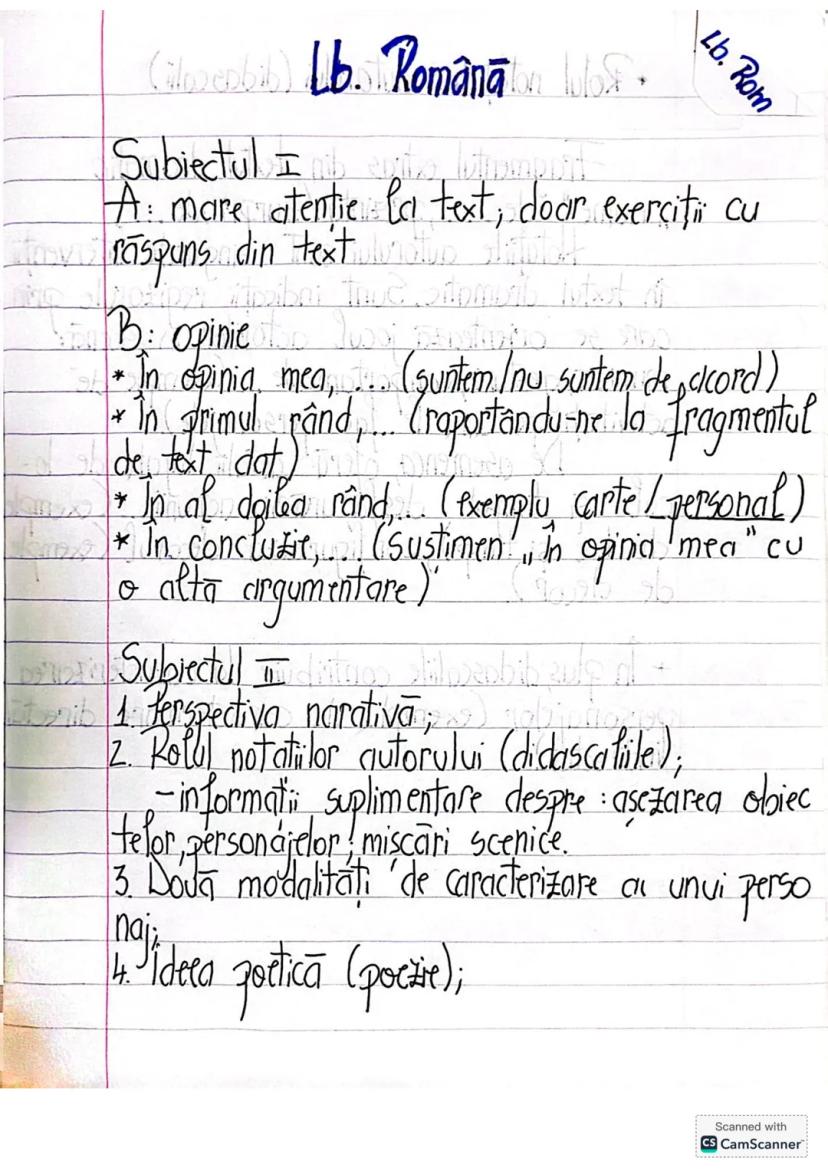 Lb. Română
Lb. Rom
Subiectul I
A: mare atenție la text, doar exerciții cu
răspuns din text
B: opinie
* În opinia mea,... (suntem/nu suntem de acord)
* În primul rând,... (raportându-ne la fragmentul
de text dat)
* În al doilea rând,... (exemplu carte/personal)
* În concluzie,... (susținem „În opinia mea" cu
o altă argumentare)
Subiectul II
1. Perspectiva narativă;
2. Rolul notațiilor autorului (didascaliile);
-informații suplimentare despre: așezarea obiec
telor, personajelor; mișcări scenice.
3. Două modalități de caracterizare a unui perso
naj;
4. Ideea poetică (poezie);
Scanned with
CS CamScanner